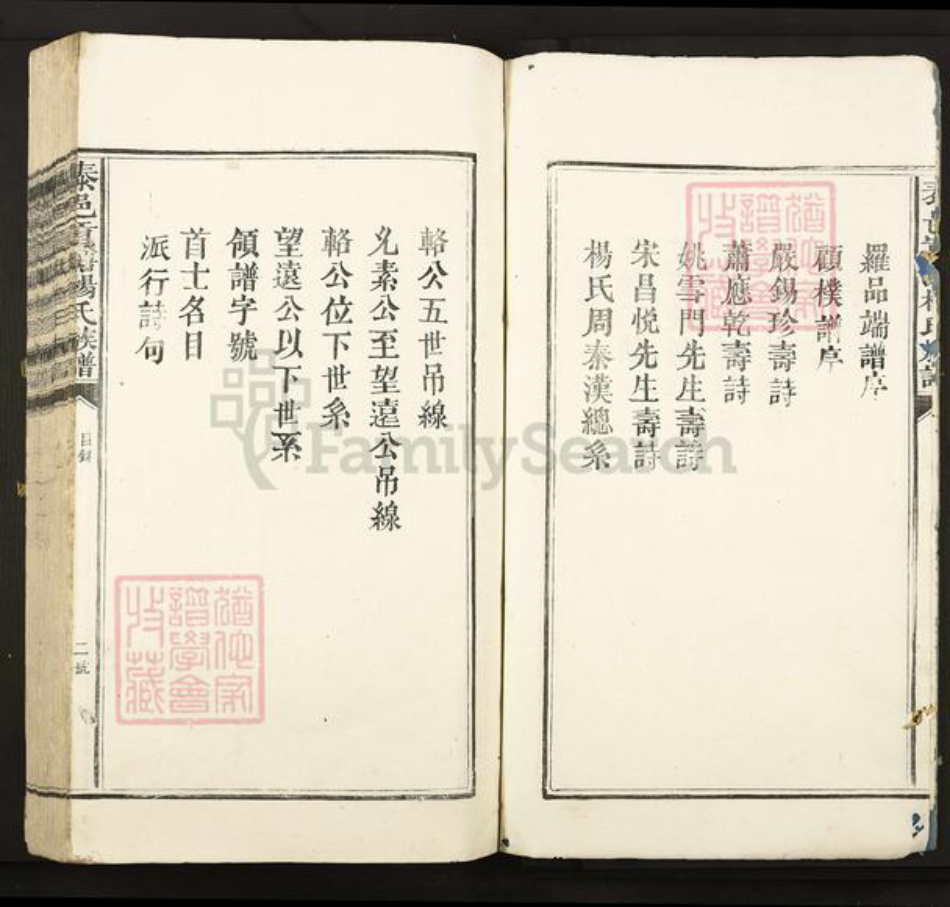 羅品端譜序
顧樸譜序
嚴錫珍壽詩
蕭應乾壽詩
姚雪門先生壽詩
宋昌悦先生壽詩
楊氏周秦漢總系
輅公五世吊線
允素公至望遠公吊線
輅公位下世系
望遠公以下世系
領譜字號
首士名目
派行詩句
泰邑 楊氏族譜
目錄
二號
猶他家
譜學會
收藏
猶他家
譜學會
收藏
FamilySearch